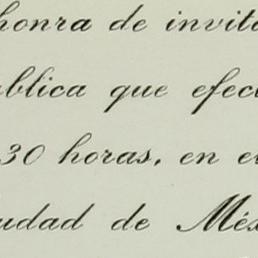 honra de invita
ública que efec
30 horas, en el
iudad de Méx